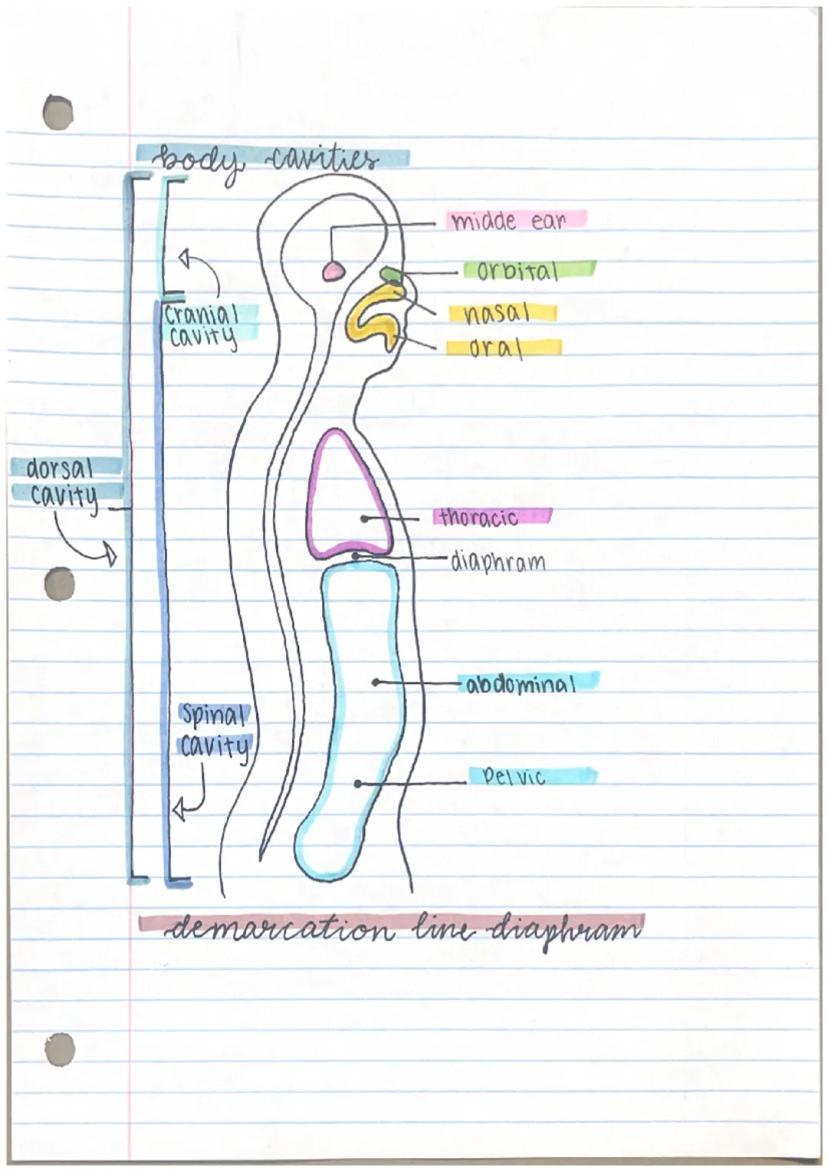 body cavities
midde ear
orbital
nasal
oral
cranial
cavity
dorsal
cavity
thoracic
diaphram
abdominal
spinal
cavity
pelvic
demarcation line diaphram